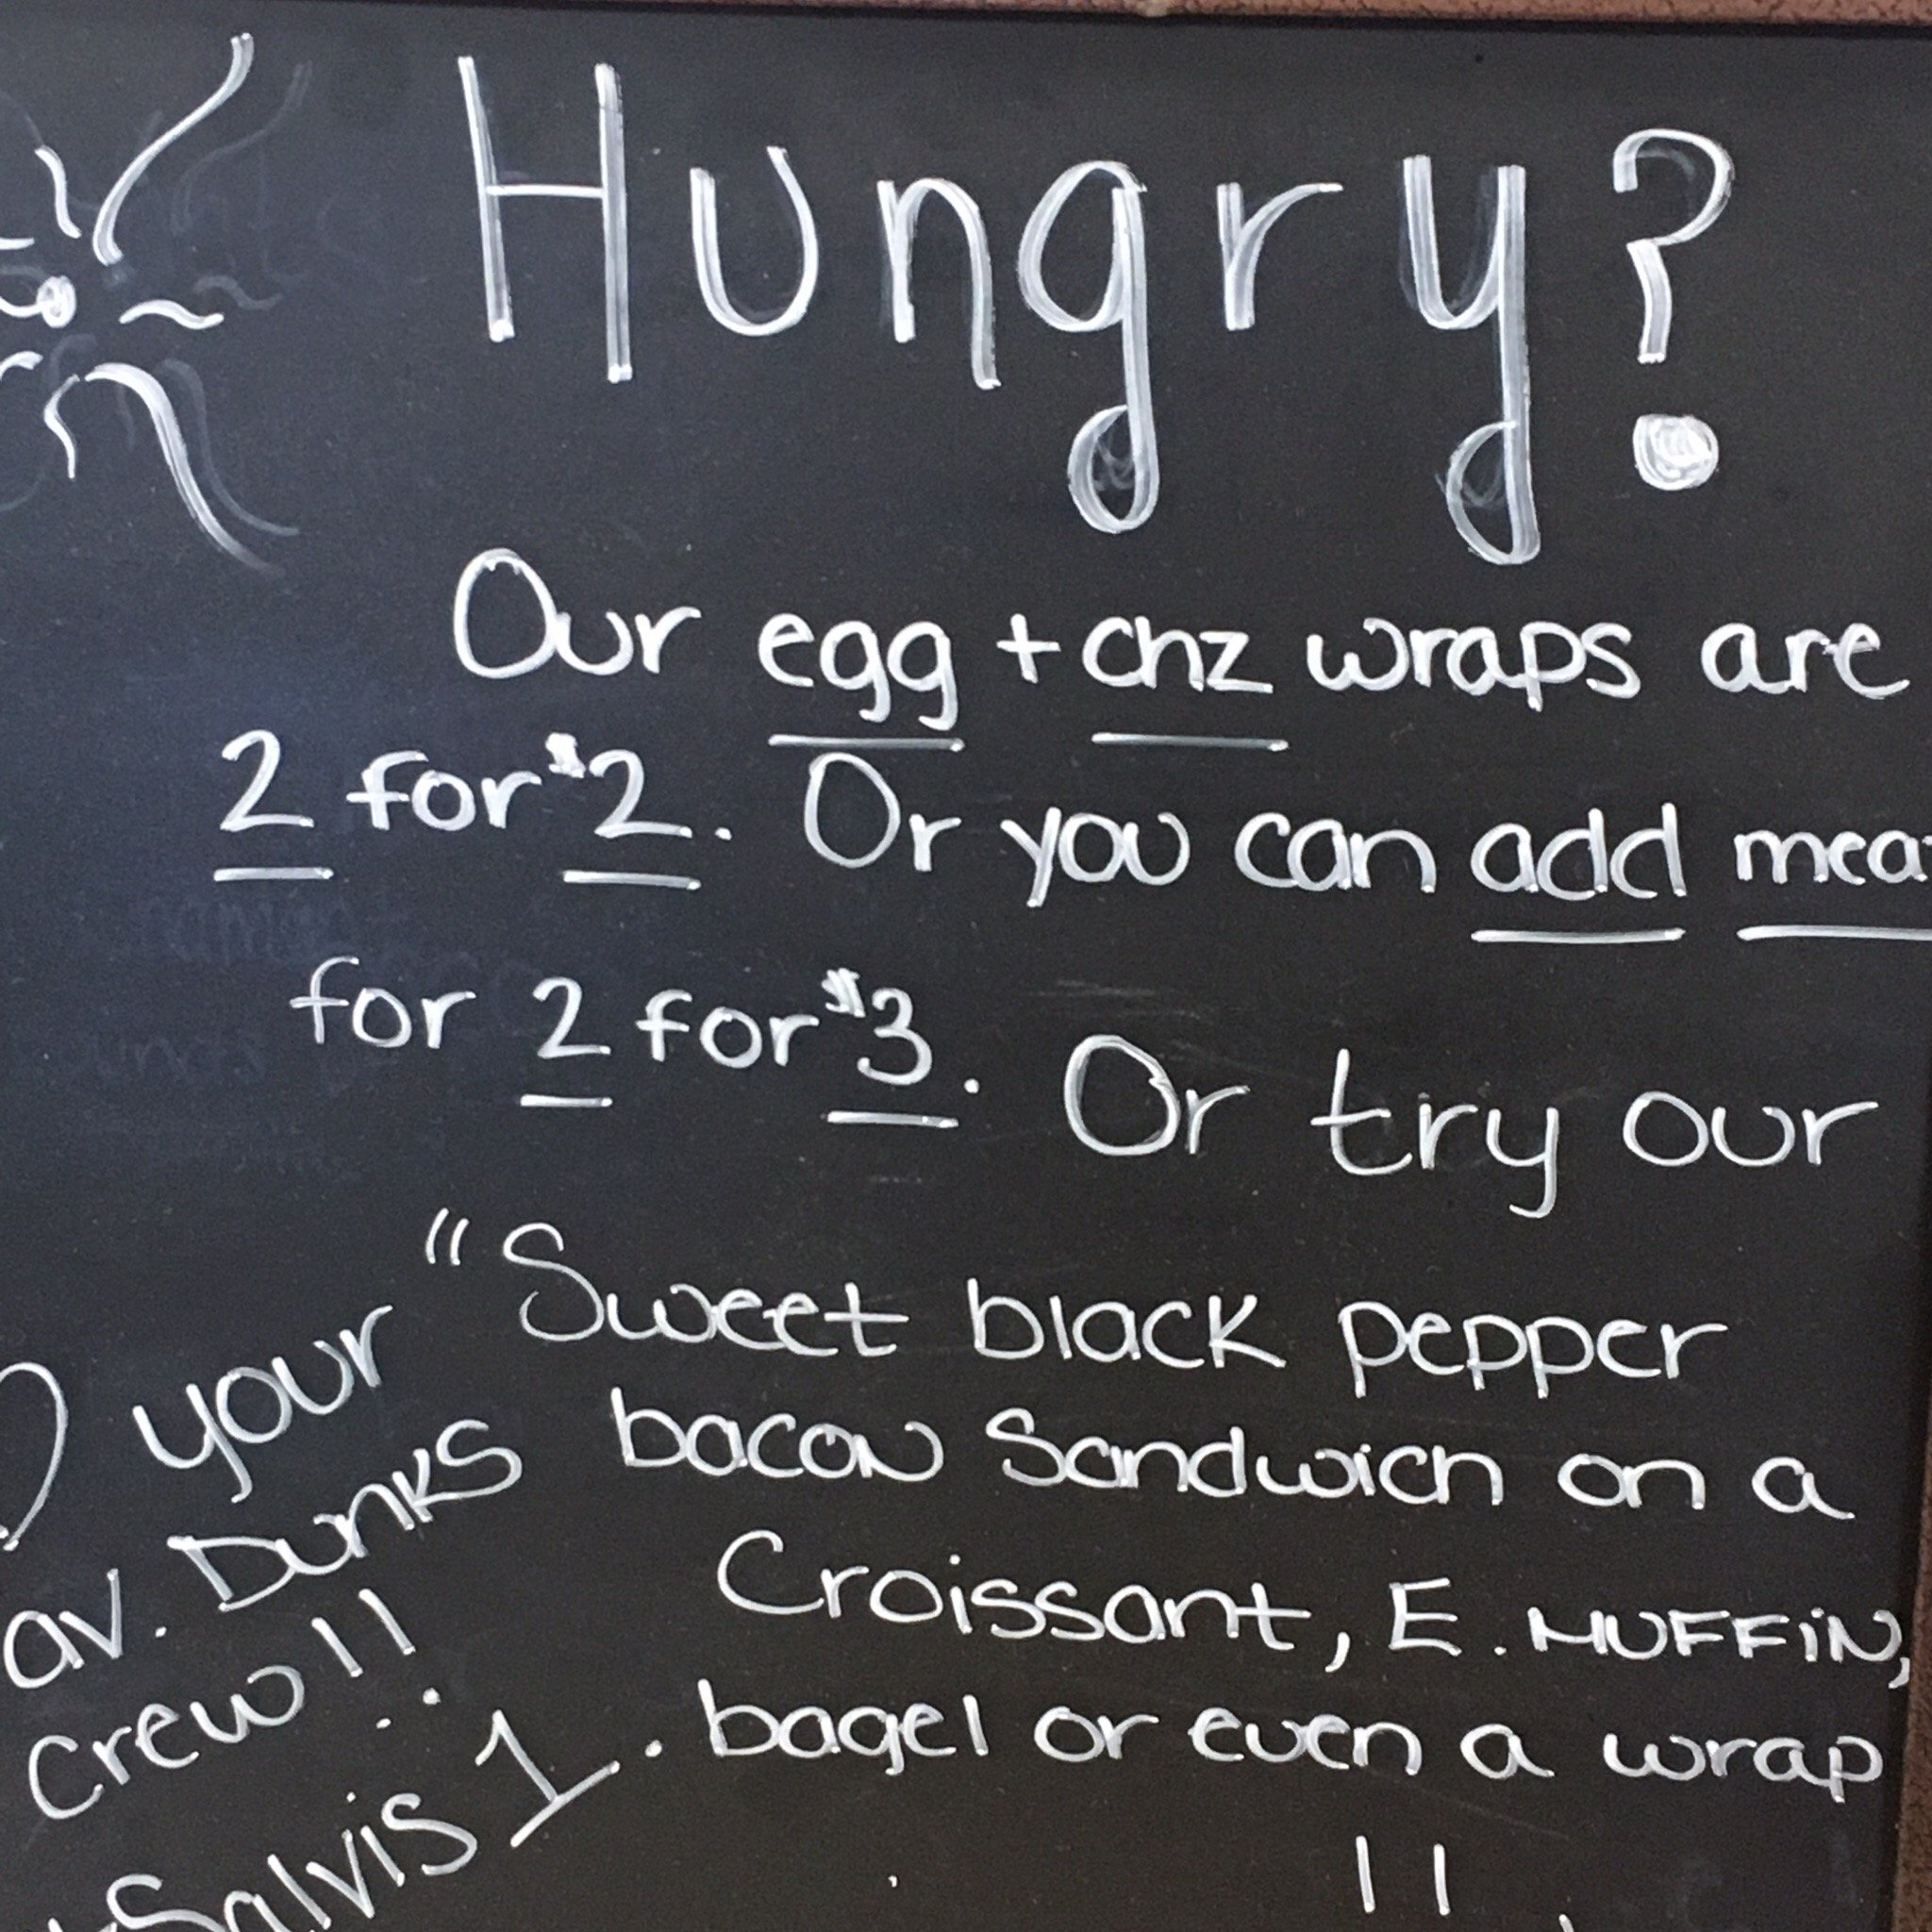 Hungry?
Our egg + chz wraps are
2 for $2. Or you can add mea
for 2 for $3. Or try our
"Sweet black pepper
bacon Sandwich on a
Croissant, E. MUFFiN,
bagel or even a wrap
!!
your
av. Dunks
crew!!
-Salvis 1.